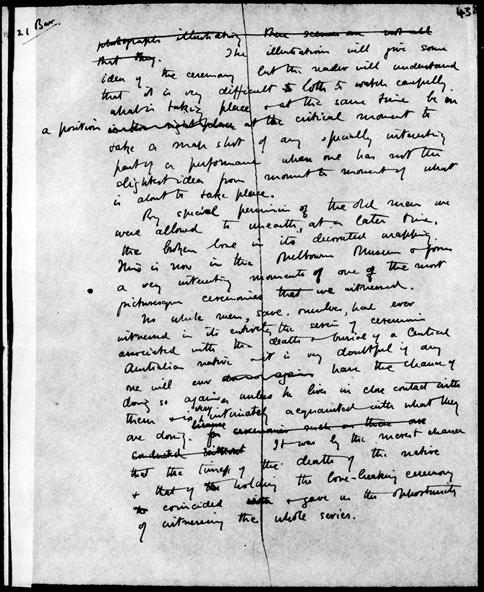 43
21 Bar.
photographs illustrating these scenes are not all
that they. The illustrations will give some
idea of the ceremony but the reader will understand
that it is very difficult to both to watch carefully
what is taking place & at the same time be in
a position in the right place at the critical moment to
take a snap shot of any specially interesting
part of a performance when one has not the
slightest idea from moment to moment of what
is about to take place.
By special permission of the old men we
were allowed to unearth, at a later time,
the broken bone in its decorated wrapping.
This is now in the Melbourne Museum & forms
a very interesting memento of one of the most
picturesque ceremonies that we witnessed.
No white men, save ourselves, had ever
witnessed in its entirety the series of ceremonies
associated with the death & burial of a Central
Australian native & it is very doubtful if any
one will ever do so again have the chance of
doing so again unless he lives in close contact with
them & is very intimately acquainted with what they
are doing. for because ceremonies such as these are
conducted without It was by the merest chance
that the times of the death of the native
& that of the holding the bone-breaking ceremony
coincided & gave us the opportunity
of witnessing the whole series.